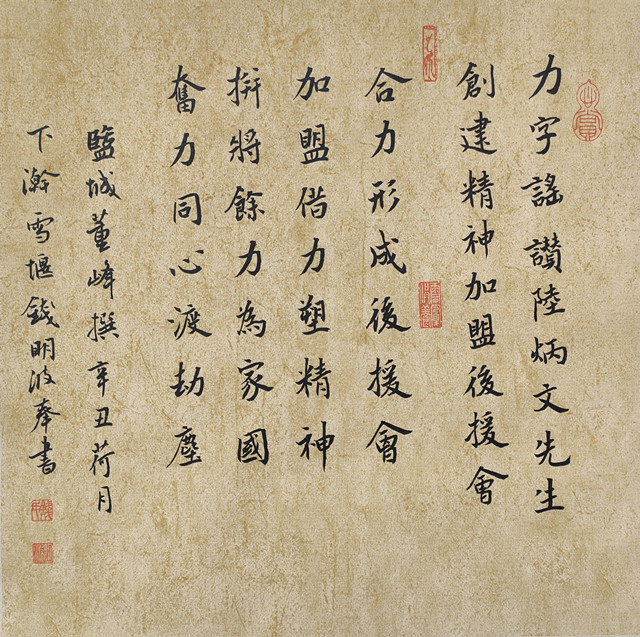 力字謠讃陸炳文先生
創建精神加盟後援會
合力形成後援會
加盟借力塑精神
拚將餘力為家國
奮力同心渡劫塵
鹽城董峰撰辛丑荷月
下瀚雪堰錢明波奉書